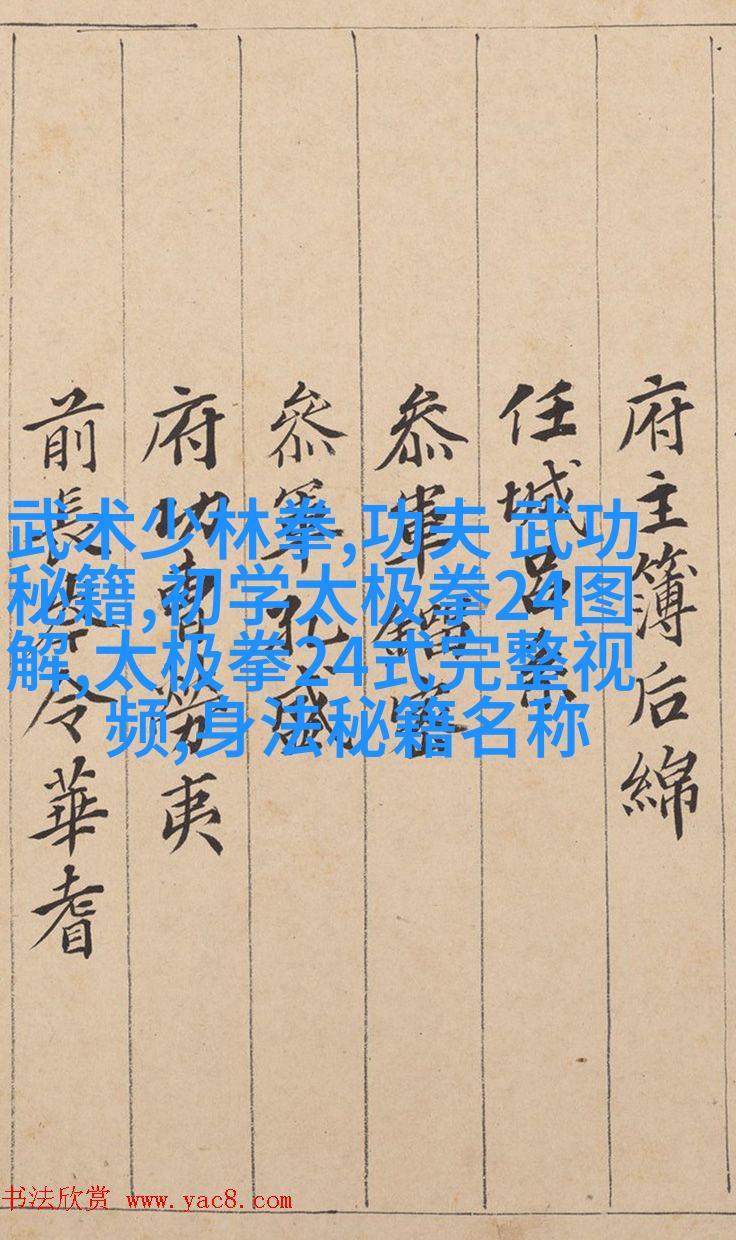 府主簿后綿
任城呂系
叅軍鎦密
叅軍孔盛
府功曹勞夷
前長岑令華耆
武术少林拳,功夫 武功
秘籍,初学太极拳24图
解,太极拳24式完整视
频,身法秘籍名称
书法欣赏 www.yac8.com